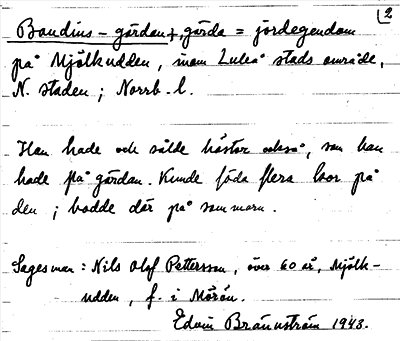 2
Baudins-gärdan, gärda = jordegendom
på Mjölkudden, inom Luleå stads område,
N. staden ; Norrb. l.
Han hade och sålde hästar också, som han
hade på gärdan. Kunde föda flera kor på
den ; bodde där på sommarn.
Sagesman : Nils Olof Pettersson, över 60 år, Mjölk-
udden, f. i Mörön.
Edvin Brännström 1943.